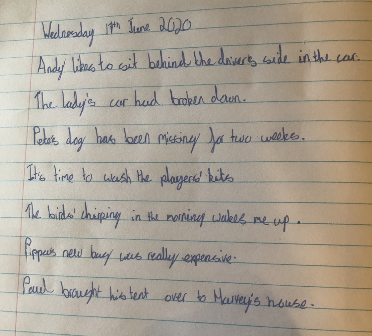 Wednesday 17th June 2020
Andy likes to sit behind the driver's side in the car.
The lady's car had broken down.
Pete's dog has been missing for two weeks.
It's time to wash the players' kits
The birds' chirping in the morning wakes me up.
Pippa's new bag was really expensive.
Paul brought his tent over to Harvey's house.